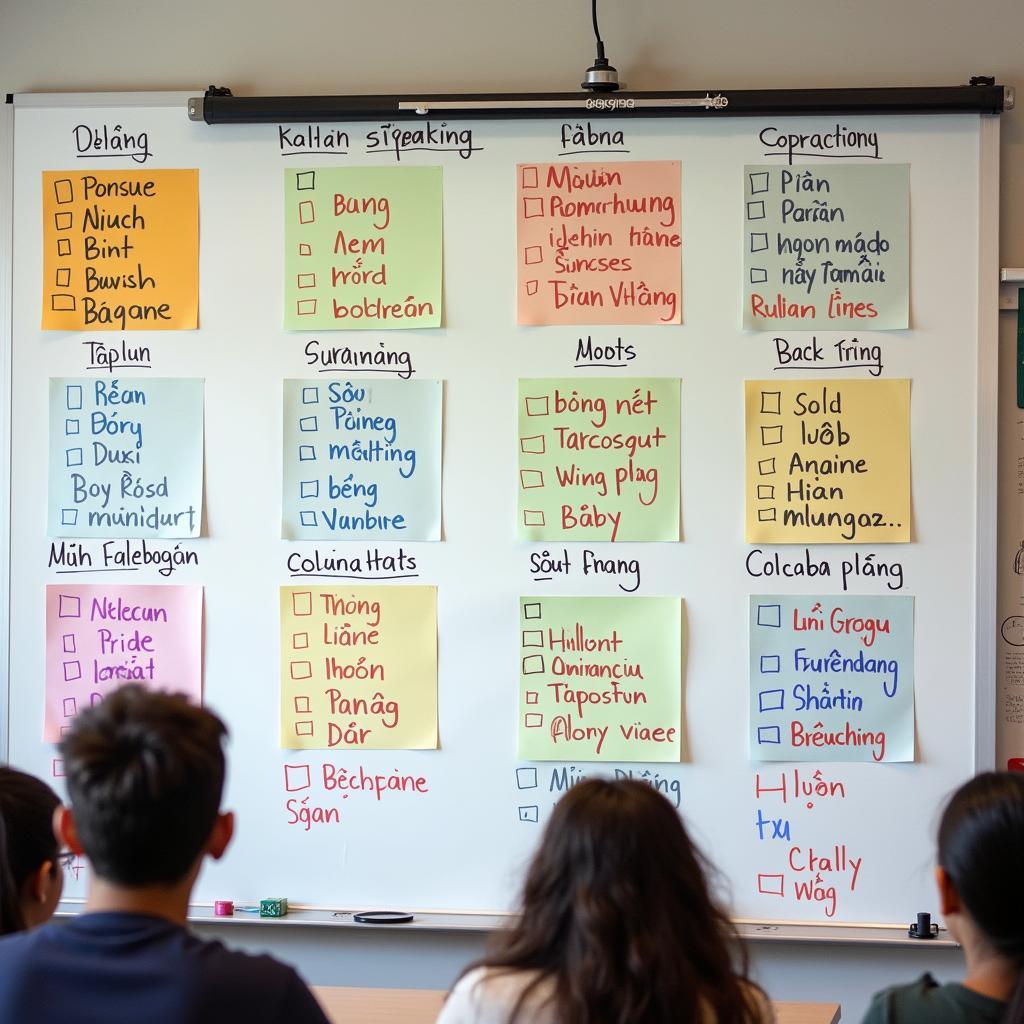 Delăng
Ponsue
Niuch
Bint
Buvish
Băgane
Kaltan sīpeaking
Bang
Aem
mórd
boblreăn
făbna
Mąuin
Pomrrhuung
idehin hāne
Šuncses
Tšian VHăng
Copractiony
Piăn
Parïăn
họon mádo
nāy Tamăi
Rulian lĩnes
Tăplun
Rĕan
Đóry
Duxi
Boy Rŏsd
munidurt
Suraináng
Sôu
Pôineg
meătting
béng
Vanbire
Moots
bòng nét
Tarcosgut
Wing plag
Băby
Back Tring
Sold
luôb
Anaine
Hian
mlungaz..
Mùh Falebogăn
Nelecun
Pride
ColinaHats
Thong
Liăne
lhoón
Panăg
Dár
Bĕchpáne
Sgan
Sôut Fnang
Hillont
Onirancíu
Taposťun
Alony viaee
Colcaba plăng
Lni Grogu
Furêndang
Shărtin
Brĕuching
Hluộn
txu
Ctally
Wăg